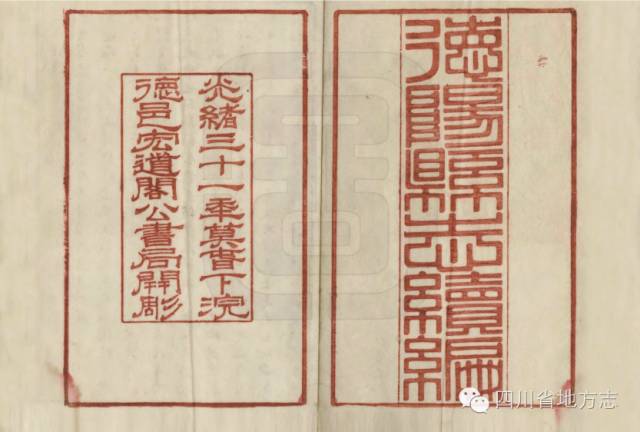 德陽縣志續編
光緒三十一年下浣
德邑宏道閣公書局開彫
四川省地方志